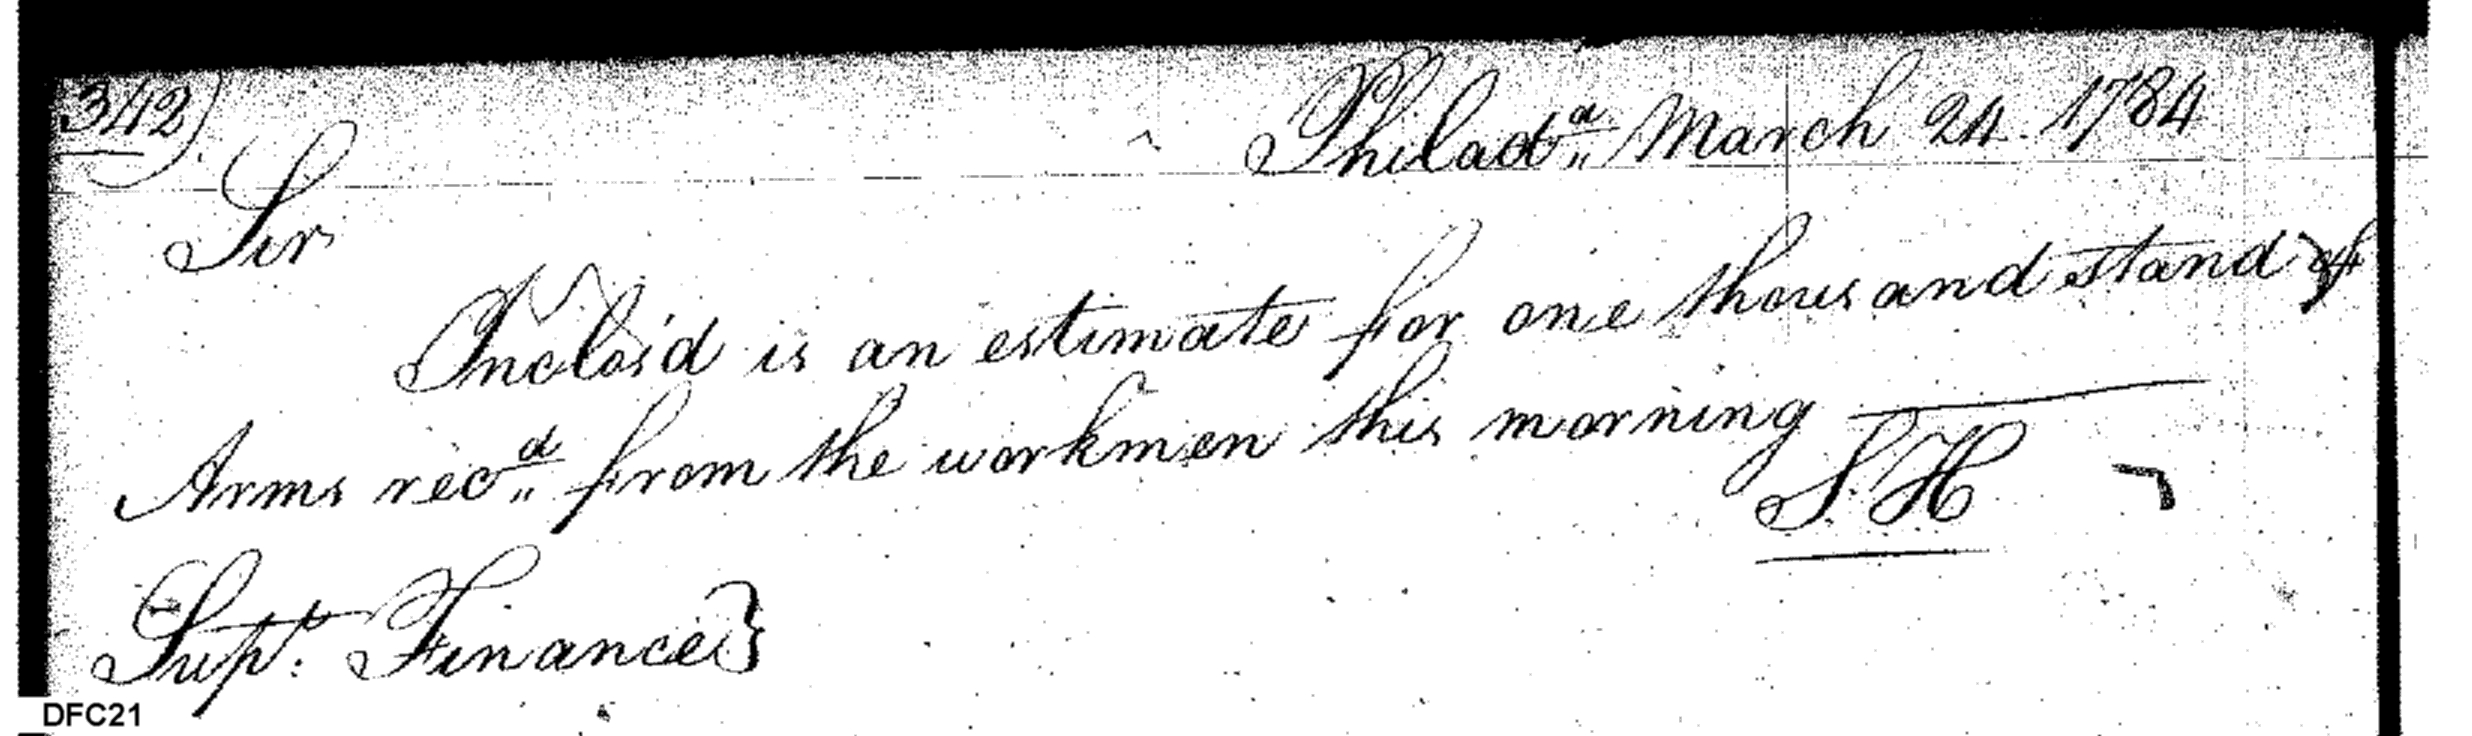 342).
Philad.a March 24. 1784
Sir
Inclos'd is an estimate for one thousand stand of
Arms rec.d from the workmen this morning
S. H
Supt. Finance}
DFC21